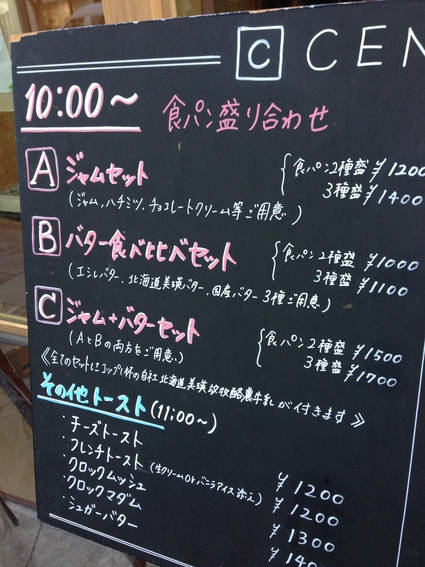 C CEN
10:00〜 食パン盛り合わせ
A ジャムセット {食パン2種盛 ¥1200
3種盛 ¥1400
(ジャム,ハチミツ,チョコレートクリーム等ご用意)
B バター食べ比べセット {食パン2種盛 ¥1000
3種盛 ¥1100
(エシレバター,北海道美瑛バター,国産バター3種ご用意)
C ジャム+バターセット {食パン2種盛 ¥1500
3種盛 ¥1700
(AとBの両方をご用意.)
《全てのセットにコップ1杯の自社北海道美瑛放牧酪農牛乳が付きます》
その他トースト(11:00〜)
・チーズトースト ¥1200
・フレンチトースト(生クリームorバニラアイス添え) ¥1200
・クロックムッシュ ¥1300
・クロックマダム ¥140
・シュガーバター